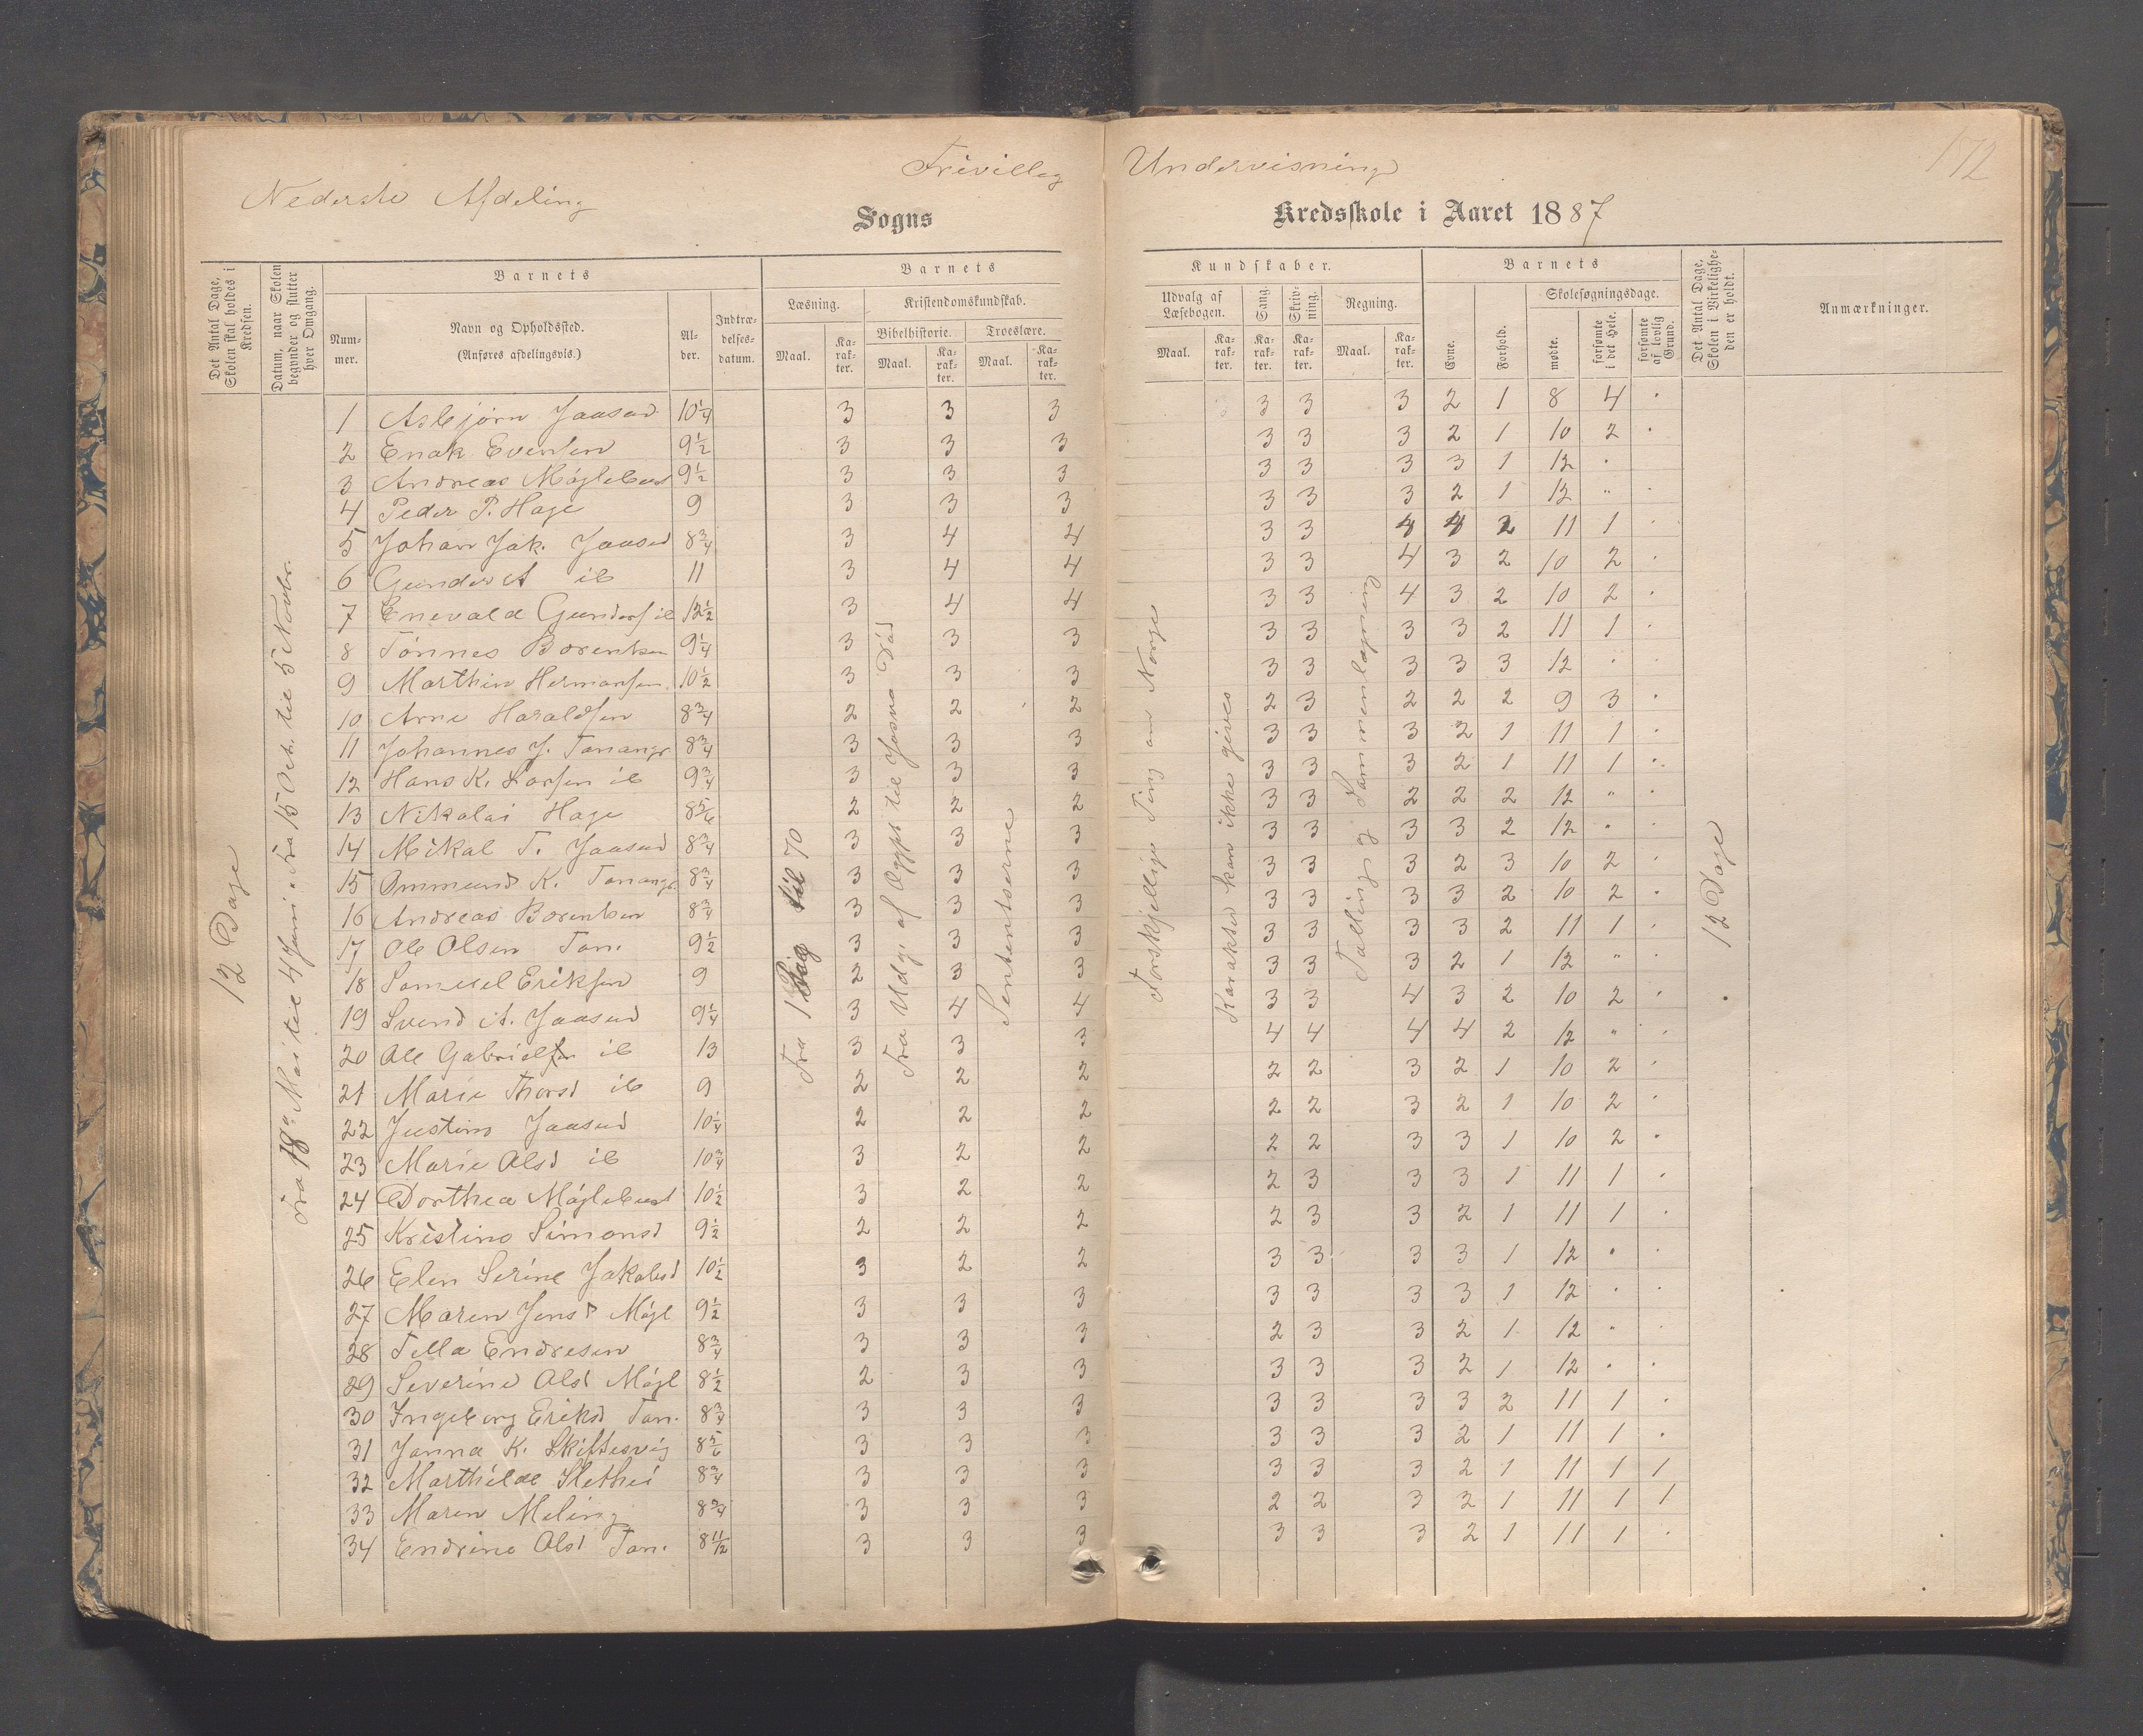 172
Frivillig Undervisning
Nederste Afdeling
Sogns Kredsskole i Aaret 1887
Det Antal Dage, Skolen skal holdes i Kredsen.
Datum, naar Skolen begynder og slutter hver Omgang.
Barnets
Nummer.
Navn og Opholdssted.
(Anføres afdelingsvis.)
Alder.
Indtrædelsesdatum.
Barnets Kundskaber.
Læsning.
Maal.
Karakter.
Kristendomskundskab.
Bibelhistorie.
Maal.
Karakter.
Troeslære.
Maal.
Karakter.
Udvalg af Læsebogen.
Maal.
Karakter.
Sang.
Karakter.
Skrivning.
Karakter.
Regning.
Maal.
Karakter.
Barnets
Evne.
Forhold.
Skolesøgningsdage.
mødte.
forsømte i det Hele.
forsømte af lovlig Grund.
Det Antal Dage, Skolen i Virkeligheden er holdt.
Anmærkninger.
12 Dage
Fra 18de Mai til 4 Juni. Fra 15 Oct. til 5 Novbr.
Fra 1 til 70
Fra Udg. af Ægypt til Josva Död
Sententserne
Forskjellige Ting om Norge
Karakter kan ikke gives
Tælling og Sammenlægning
12 Dage
1 Asbjörn Jaasund 10 1/4 3 3 3 3 3 3 2 1 8 4 .
2 Enok Evensen 9 1/2 3 3 3 3 3 3 2 1 10 2 .
3 Andreas Möglebust 9 1/2 3 3 3 3 3 3 3 1 12 .
4 Peder P. Hage 9 3 3 3 3 3 3 2 1 12 " .
5 Johan Jak. Jaasund 8 3/4 3 4 4 3 3 4 4 2 11 1 .
6 Gunder A ib 11 3 4 4 3 3 4 3 2 10 2 .
7 Enevald Gunders ib 12 1/2 3 4 4 3 3 4 3 2 10 2 .
8 Tönnes Borentsen 9 1/4 3 3 3 3 3 3 3 2 11 1 .
9 Marthin Hermansen 10 1/2 3 3 3 3 3 3 3 3 12 . .
10 Arne Haraldsen 8 3/4 2 2 2 2 3 2 2 2 9 3 .
11 Johannes J. Tananger 8 3/4 3 3 3 3 3 3 2 1 11 1 .
12 Hans K. Larsen ib 9 3/4 3 3 3 3 3 3 2 1 11 1 .
13 Nikolai Hage 8 5/6 2 2 2 3 3 2 2 2 12 " .
14 Mikal T. Jaasund 8 3/4 3 3 3 3 3 3 3 2 12 . .
15 Ommund K. Tananger 8 3/4 3 3 3 3 3 3 2 3 10 2 .
16 Andreas Borentsen 8 3/4 3 3 3 3 3 3 3 2 10 2 .
17 Ole Olsen Tan. 9 1/2 3 3 3 3 3 3 3 2 11 1 .
18 Samuel Eriksen 9 2 3 3 3 3 3 2 1 12 " .
19 Svend A. Jaasund 9 1/4 3 4 4 3 3 4 3 2 10 2 .
20 Ole Gabrielsen ib 13 3 3 3 4 4 4 4 2 12 " .
21 Marie Thorsd ib 9 2 2 2 2 2 3 2 1 10 2 .
22 Justine Jaasund 10 1/4 2 2 2 2 2 3 2 1 10 2 .
23 Marie Olsd ib 10 3/4 3 2 2 2 2 3 3 1 10 2 .
24 Dorthea Möglebust 10 1/2 3 2 2 2 3 3 3 1 11 1 .
25 Kristine Simonsd 9 1/2 2 2 2 2 3 3 2 1 11 1 .
26 Elen Serine Jakobsd 10 1/2 3 2 2 3 3 3 3 1 12 . .
27 Maren Jensd Mögl 9 1/2 3 3 3 3 3 3 3 1 12 . .
28 Tella Endresen 8 3/4 3 3 3 2 3 3 2 1 12 " .
29 Severine Olsd Mögl 8 1/2 2 3 3 3 3 3 2 1 12 . .
30 Ingeborg Eriksd Tan. 8 3/4 3 3 3 3 3 3 3 2 11 1 .
31 Janna K. Skiftesvig 8 5/6 3 3 3 3 3 3 2 1 11 1 .
32 Marthilde Slethei 8 3/4 3 3 3 3 3 3 2 1 11 1 1
33 Maren Meling 8 3/4 3 3 3 2 2 3 2 1 11 1 1
34 Endrine Olsd Tan. 8 11/12 3 3 3 3 3 3 2 1 11 1 .